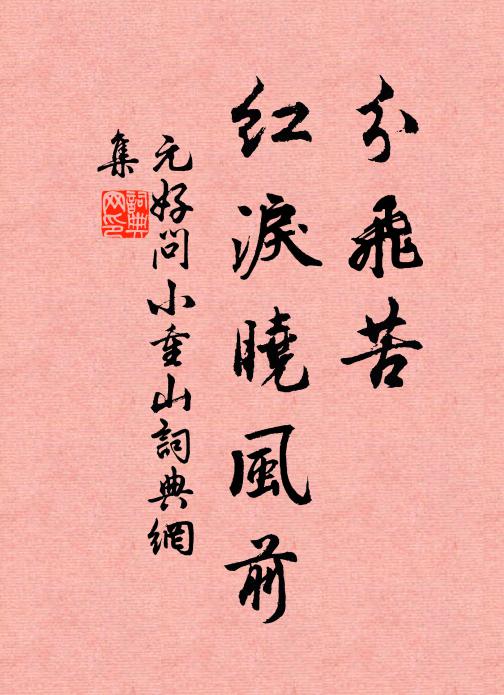 分飛苦
紅淚曉風前
元好問小重山詞典網
集
詞典网印